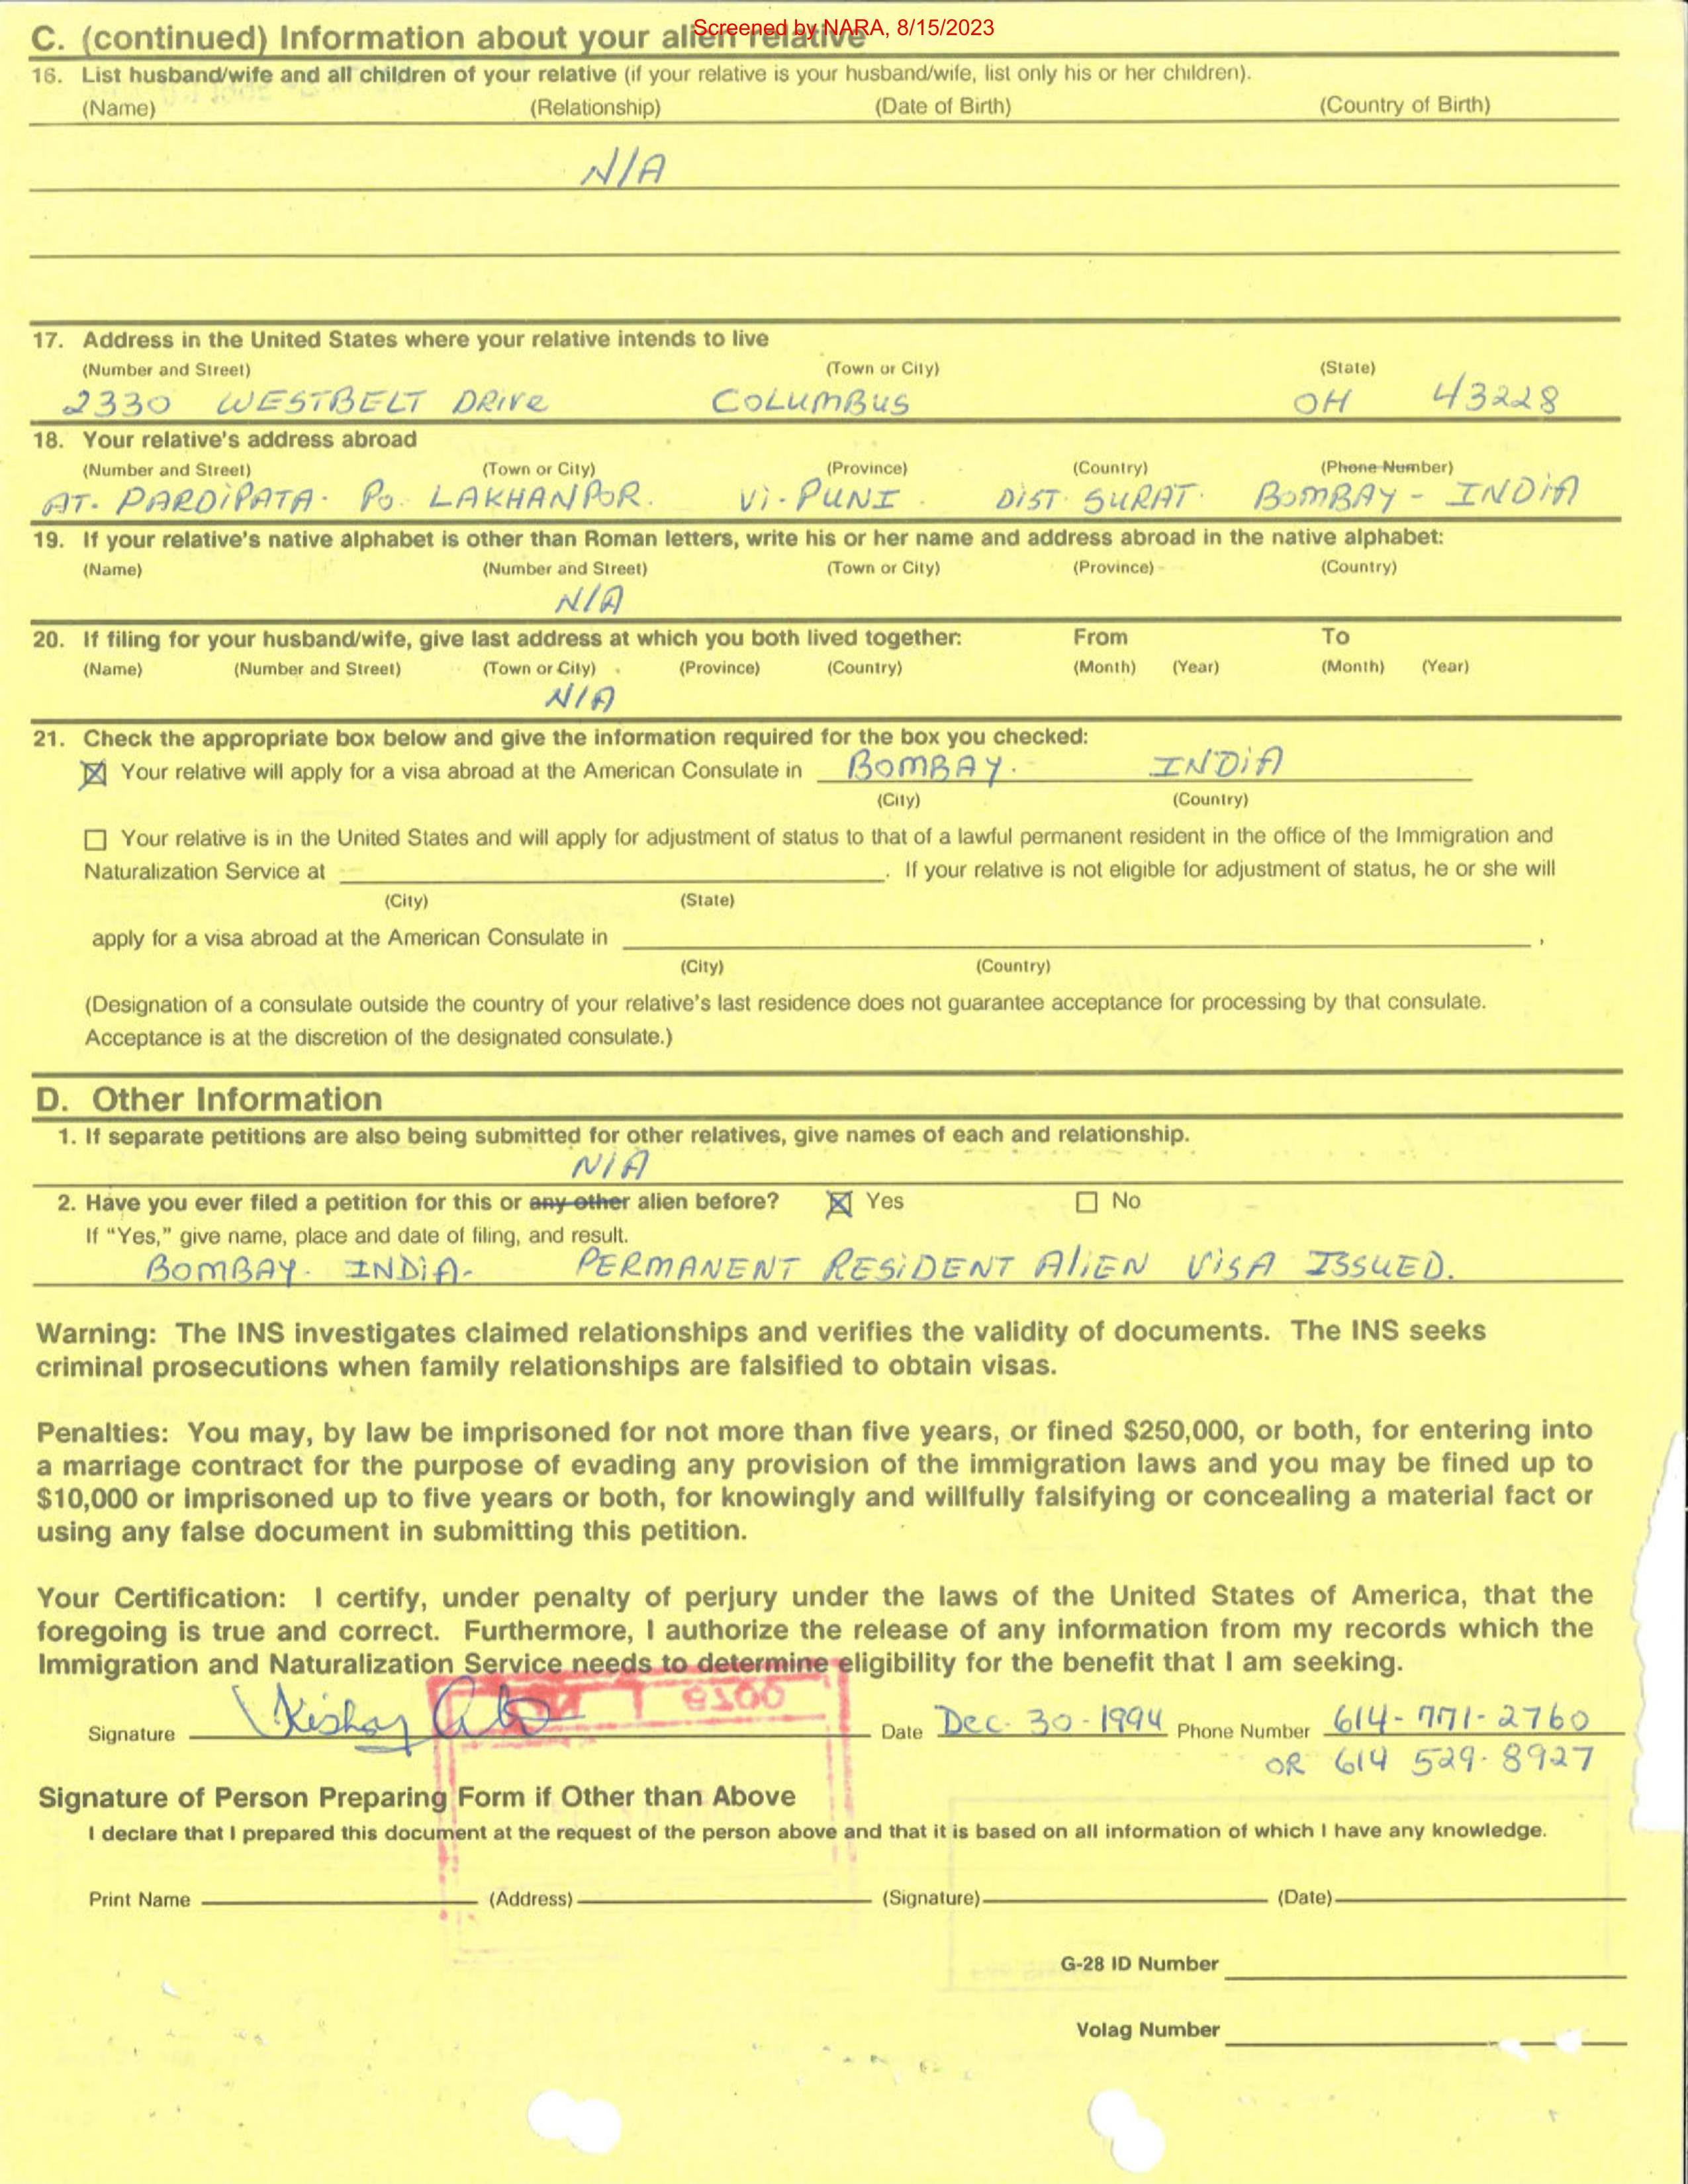 Screened by NARA, 8/15/2023
C. (continued) Information about your alien relative
16. List husband/wife and all children of your relative (if your relative is your husband/wife, list only his or her children).
(Name) (Relationship) (Date of Birth) (Country of Birth)
N/A
17. Address in the United States where your relative intends to live
(Number and Street) (Town or City) (State)
2330 WESTBELT DRIVE COLUMBUS OH 43228
18. Your relative's address abroad
(Number and Street) (Town or City) (Province) (Country) (Phone Number)
AT. PARDIPATA. PO. LAKHANPOR. Vi-PUNI. DIST. SURAT. BOMBAY - INDIA
19. If your relative's native alphabet is other than Roman letters, write his or her name and address abroad in the native alphabet:
(Name) (Number and Street) (Town or City) (Province) (Country)
N/A
20. If filing for your husband/wife, give last address at which you both lived together: From To
(Name) (Number and Street) (Town or City) (Province) (Country) (Month) (Year) (Month) (Year)
N/A
21. Check the appropriate box below and give the information required for the box you checked:
☒ Your relative will apply for a visa abroad at the American Consulate in BOMBAY. INDIA
(City) (Country)
☐ Your relative is in the United States and will apply for adjustment of status to that of a lawful permanent resident in the office of the Immigration and
Naturalization Service at . If your relative is not eligible for adjustment of status, he or she will
(City) (State)
apply for a visa abroad at the American Consulate in ,
(City) (Country)
(Designation of a consulate outside the country of your relative's last residence does not guarantee acceptance for processing by that consulate.
Acceptance is at the discretion of the designated consulate.)
D. Other Information
1. If separate petitions are also being submitted for other relatives, give names of each and relationship.
N/A
2. Have you ever filed a petition for this or any other alien before? ☒ Yes ☐ No
If "Yes," give name, place and date of filing, and result.
BOMBAY. INDIA- PERMANENT RESIDENT ALIEN VISA ISSUED.
Warning: The INS investigates claimed relationships and verifies the validity of documents. The INS seeks
criminal prosecutions when family relationships are falsified to obtain visas.
Penalties: You may, by law be imprisoned for not more than five years, or fined $250,000, or both, for entering into
a marriage contract for the purpose of evading any provision of the immigration laws and you may be fined up to
$10,000 or imprisoned up to five years or both, for knowingly and willfully falsifying or concealing a material fact or
using any false document in submitting this petition.
Your Certification: I certify, under penalty of perjury under the laws of the United States of America, that the
foregoing is true and correct. Furthermore, I authorize the release of any information from my records which the
Immigration and Naturalization Service needs to determine eligibility for the benefit that I am seeking.
Signature Kishor Date Dec. 30-1994 Phone Number 614-771-2760
OR 614 529-8927
Signature of Person Preparing Form if Other than Above
I declare that I prepared this document at the request of the person above and that it is based on all information of which I have any knowledge.
Print Name (Address) (Signature) (Date)
G-28 ID Number
Volag Number